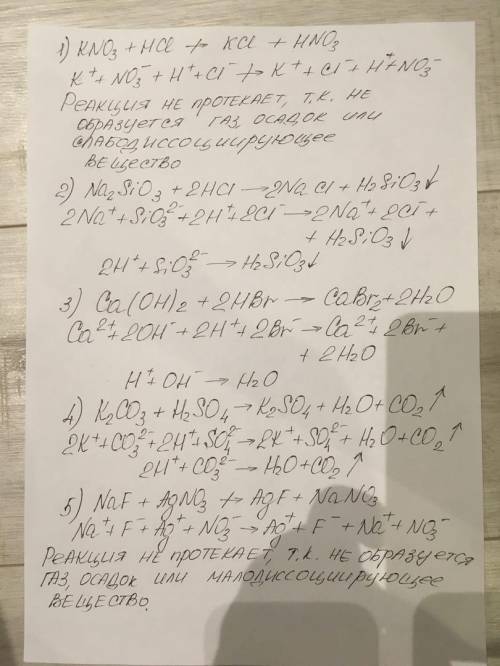 1) KNO₃ + HCl ↛ KCl + HNO₃
K⁺ + NO₃⁻ + H⁺ + Cl⁻ ↛ K⁺ + Cl⁻ + H⁺ + NO₃⁻
РЕАКЦИЯ НЕ ПРОТЕКАЕТ, Т.К. НЕ
ОБРАЗУЕТСЯ ГАЗ, ОСАДОК ИЛИ
СЛАБОДИССОЦИИРУЮЩЕЕ
ВЕЩЕСТВО
2) Na₂SiO₃ + 2HCl → 2NaCl + H₂SiO₃↓
2Na⁺ + SiO₃²⁻ + 2H⁺ + 2Cl⁻ → 2Na⁺ + 2Cl⁻ +
+ H₂SiO₃↓
2H⁺ + SiO₃²⁻ → H₂SiO₃↓
3) Ca(OH)₂ + 2HBr → CaBr₂ + 2H₂O
Ca²⁺ + 2OH⁻ + 2H⁺ + 2Br⁻ → Ca²⁺ + 2Br⁻ +
+ 2H₂O
H⁺ + OH⁻ → H₂O
4) K₂CO₃ + H₂SO₄ → K₂SO₄ + H₂O + CO₂↑
2K⁺ + CO₃²⁻ + 2H⁺ + SO₄²⁻ → 2K⁺ + SO₄²⁻ + H₂O + CO₂↑
2H⁺ + CO₃²⁻ → H₂O + CO₂↑
5) NaF + AgNO₃ ↛ AgF + NaNO₃
Na⁺ + F⁻ + Ag⁺ + NO₃⁻ → Ag⁺ + F⁻ + Na⁺ + NO₃⁻
РЕАКЦИЯ НЕ ПРОТЕКАЕТ, Т.К. НЕ ОБРАЗУЕТСЯ
ГАЗ, ОСАДОК ИЛИ МАЛОДИССОЦИИРУЮЩЕЕ
ВЕЩЕСТВО.